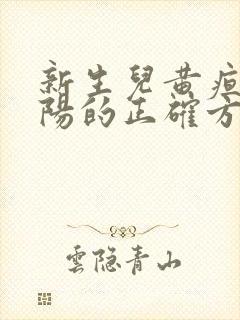 新生兒黃疸
陽的正確方
雲隐青山